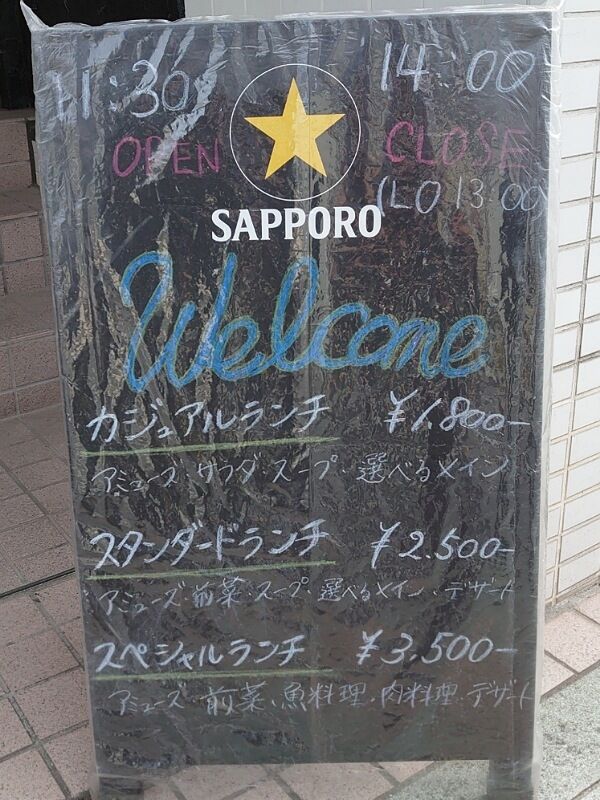 11:30 14:00
OPEN CLOSE
(LO 13:00)
SAPPORO
Welcome
カジュアルランチ ¥1.800-
アミューズ・サラダ・スープ・選べるメイン
スタンダードランチ ¥2.500-
アミューズ・前菜・スープ・選べるメイン・デザート
スペシャルランチ ¥3,500-
アミューズ・前菜、魚料理、肉料理・デザート